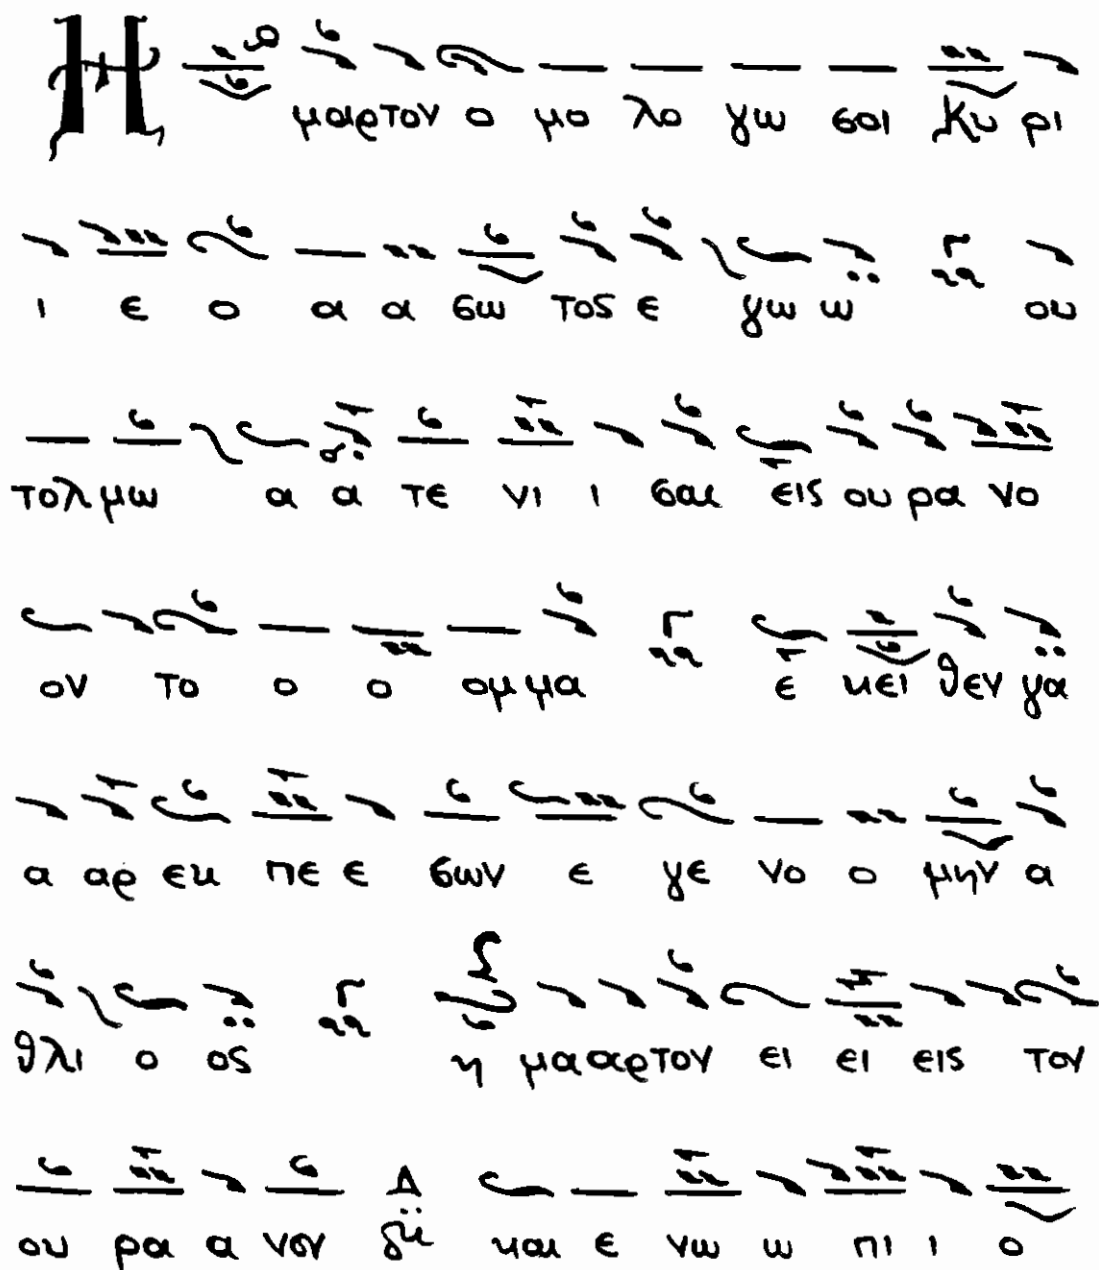 Η μαρτον ο μο λο γω σοι Κυ ρι
ι ε ο α α σω τος ε γω ω ου
τολ μω α α τε νι ι σαι εις ου ρα νο
ον το ο ο ομ μα ε κει θεν γα
α αρ εκ πε ε σων ε γε νο ο μην α
θλι ο ος η μα αρτον ει ει εις τον
ου ρα α νον και ε νω ω πι ι ο